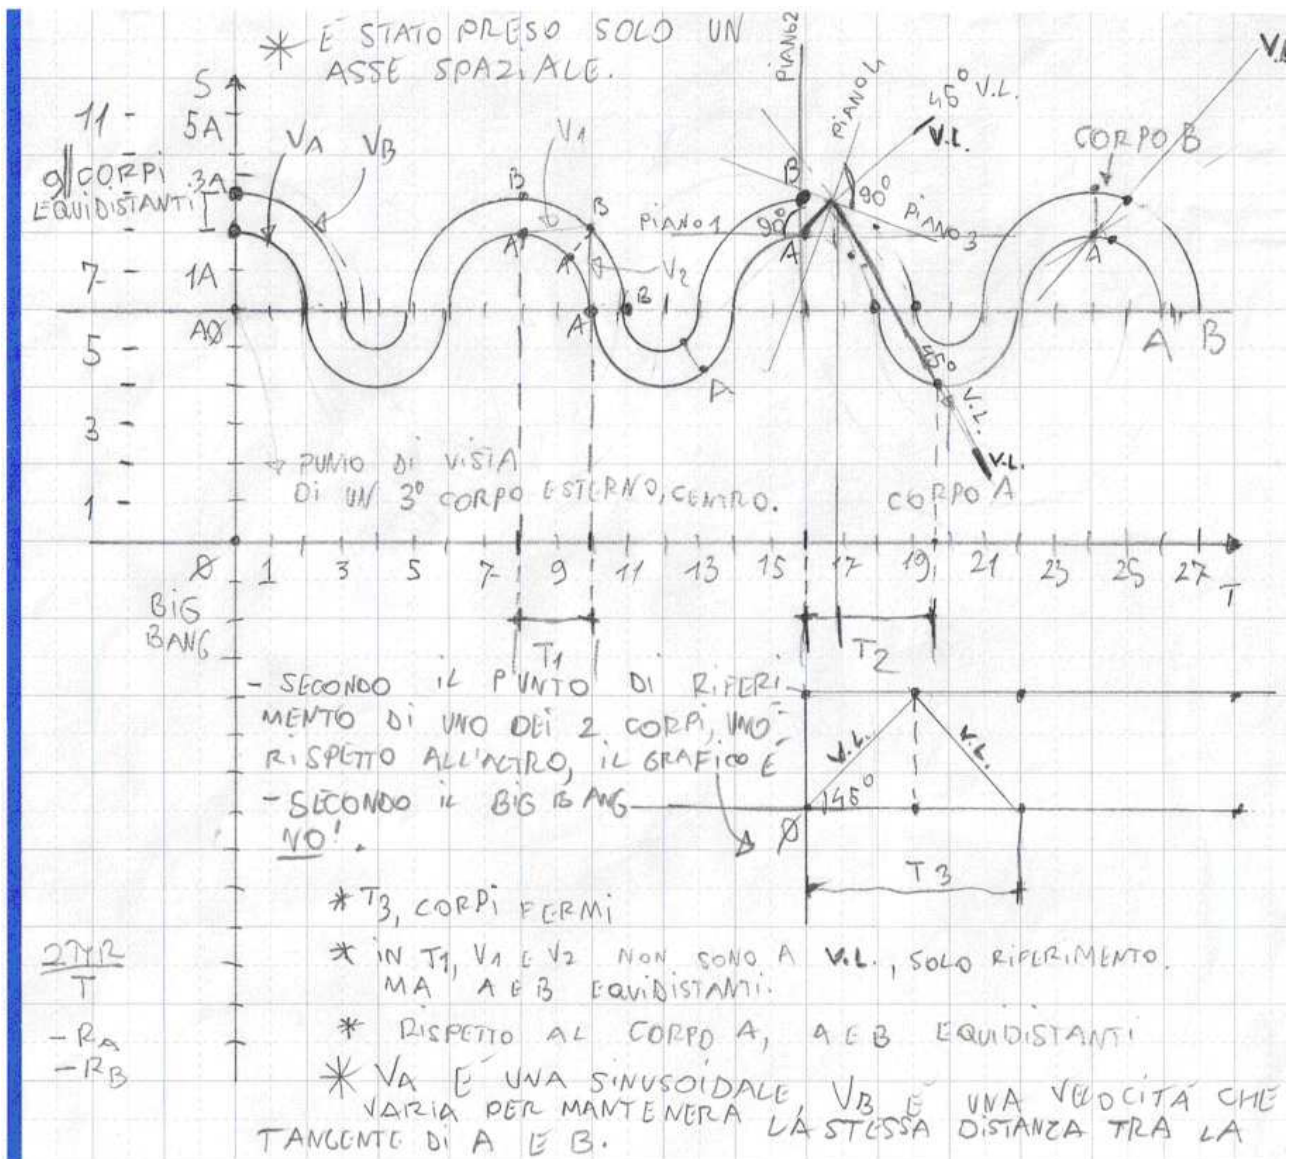 * E STATO PRESO SOLO UN
ASSE SPAZIALE.
S
11 - 5A
VA VB V1
g) CORPI 3A
EQUIDISTANTI
7- 1A
AØ
5
3
1
PIANO 2
PIANO 4
45° V.L.
V.L.
V.L.
CORPO B
B B B
90° 90°
PIANO 1
PIANO 3
A A A A
V2
B
A A B
A
45°
V.L.
V.L.
PUNTO DI VISTA
DI UN 3° CORPO ESTERNO, CENTRO.
CORPO A
Ø 1 3 5 7- 9 11 13 15 17 19 21 23 25 27 T
BIG
BANG
T1 T2
- SECONDO IL PUNTO DI RIFERI-
MENTO DI UNO DEI 2 CORPI, UNO
RISPETTO ALL'ALTRO, IL GRAFICO È
- SECONDO IL BIG BANG
NO!.
V.L. V.L.
45°
Ø
T3
* T3, CORPI FERMI
* IN T1, V1 E V2 NON SONO A V.L., SOLO RIFERIMENTO.
MA A E B EQUIDISTANTI.
2πR
T
- RA
- RB
* RISPETTO AL CORPO A, A E B EQUIDISTANTI
* VA E UNA SINUSOIDALE, VB E UNA VELOCITÁ CHE
VARIA PER MANTENERA LA STESSA DISTANZA TRA LA
TANGENTE DI A E B.